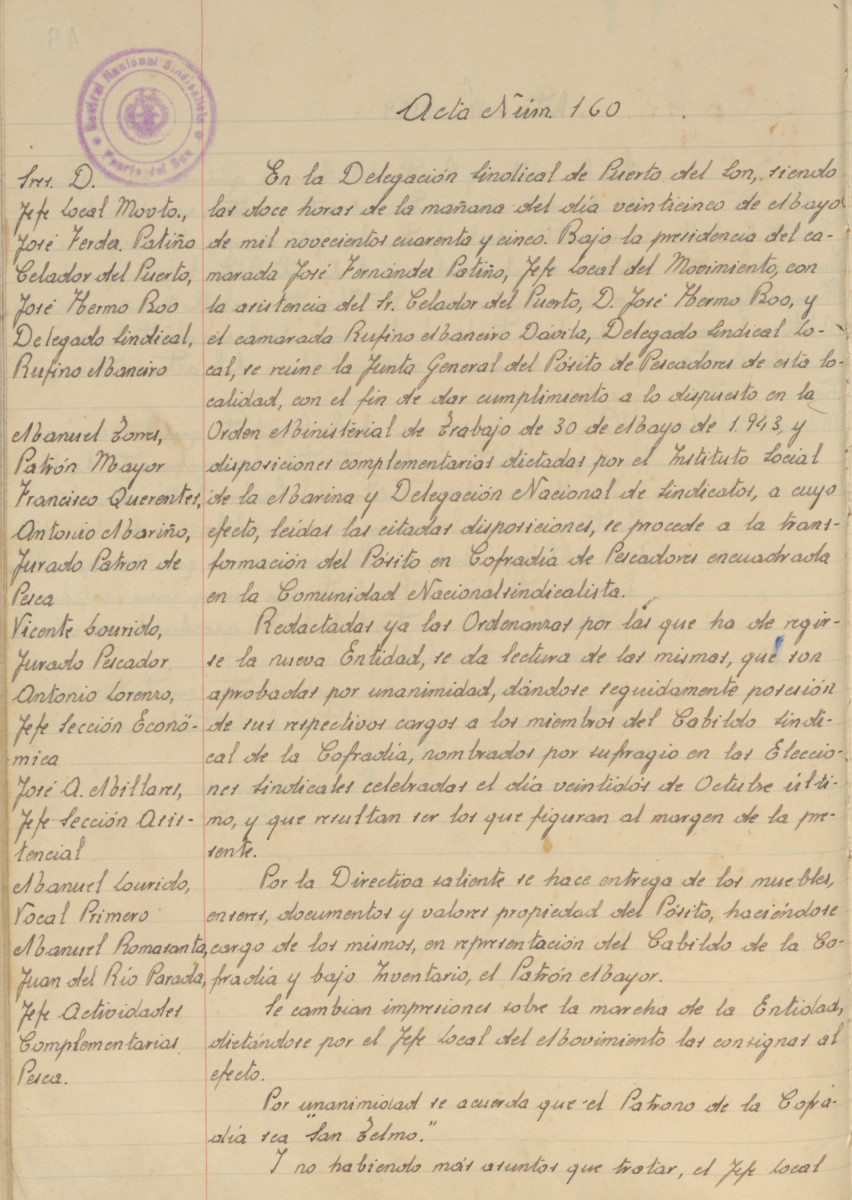 Acta Núm. 160
Central Nacional Sindicalista
Puerto del Son
Sres. D.
Jefe Local Movto.,
José Ferdez. Patiño
Celador del Puerto,
José Hermo Boo
Delegado Sindical,
Rufino Maneiro
Manuel Torres,
Patrón Mayor
Francisco Querentes,
Antonio Mariño,
Jurado Patron de
Pesca
Vicente Lourido,
Jurado Pescador
Antonio Lorenzo,
Jefe Sección Econó-
mica
José A. Millares,
Jefe Sección Asis-
tencial
Manuel Lourido,
Vocal Primero
Manuel Romasanta,
Juan del Río Parada,
Jefe Actividades
Complementarias
Pesca.
En la Delegación Sindical de Puerto del Son, siendo
las doce horas de la mañana del día veinticinco de Mayo
de mil novecientos cuarenta y cinco. Bajo la presidencia del ca-
marada José Fernández Patiño, Jefe Local del Movimiento, con
la asistencia del Sr. Celador del Puerto, D. José Hermo Boo, y
el camarada Rufino Maneiro Dávila, Delegado Sindical Lo-
cal, se reúne la Junta General del Pósito de Pescadores de esta lo-
calidad, con el fin de dar cumplimiento a lo dispuesto en la
Orden Ministerial de Trabajo de 30 de Mayo de 1.943, y
disposiciones complementarias dictadas por el Instituto Social
de la Marina y Delegación Nacional de Sindicatos, a cuyo
efecto, leídas las citadas disposiciones, se procede a la trans-
formación del Pósito en Cofradía de Pescadores encuadrada
en la Comunidad Nacionalsindicalista.
Redactadas ya las Ordenanzas por las que ha de regir-
se la nueva Entidad, se da lectura de las mismas, que son
aprobadas por unanimidad, dándose seguidamente posesión
de sus respectivos cargos a los miembros del Cabildo Sindi-
cal de la Cofradía, nombrados por sufragio en las Eleccio-
nes Sindicales celebradas el día veintidós de Octubre últi-
mo, y que resultan ser los que figuran al margen de la pre-
sente.
Por la Directiva saliente se hace entrega de los muebles,
enseres, documentos y valores propiedad del Pósito, haciéndose
cargo de los mismos, en representación del Cabildo de la Co-
fradía y bajo Inventario, el Patrón Mayor.
Se cambian impresiones sobre la marcha de la Entidad,
dictándose por el Jefe Local del Movimiento las consignas al
efecto.
Por unanimidad se acuerda que el Patrono de la Cofra-
día sea "San Telmo."
Y no habiendo más asuntos que tratar, el Jefe Local